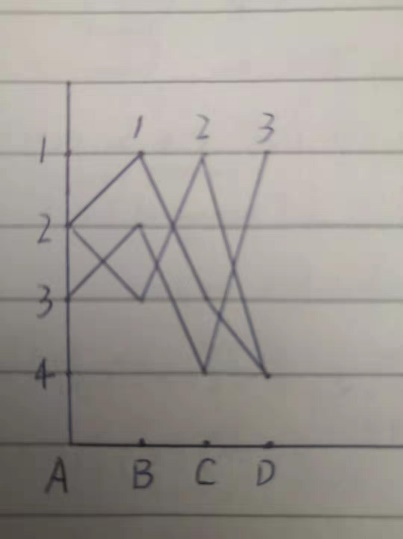 1 2 3
1
2
3
4
A B C D